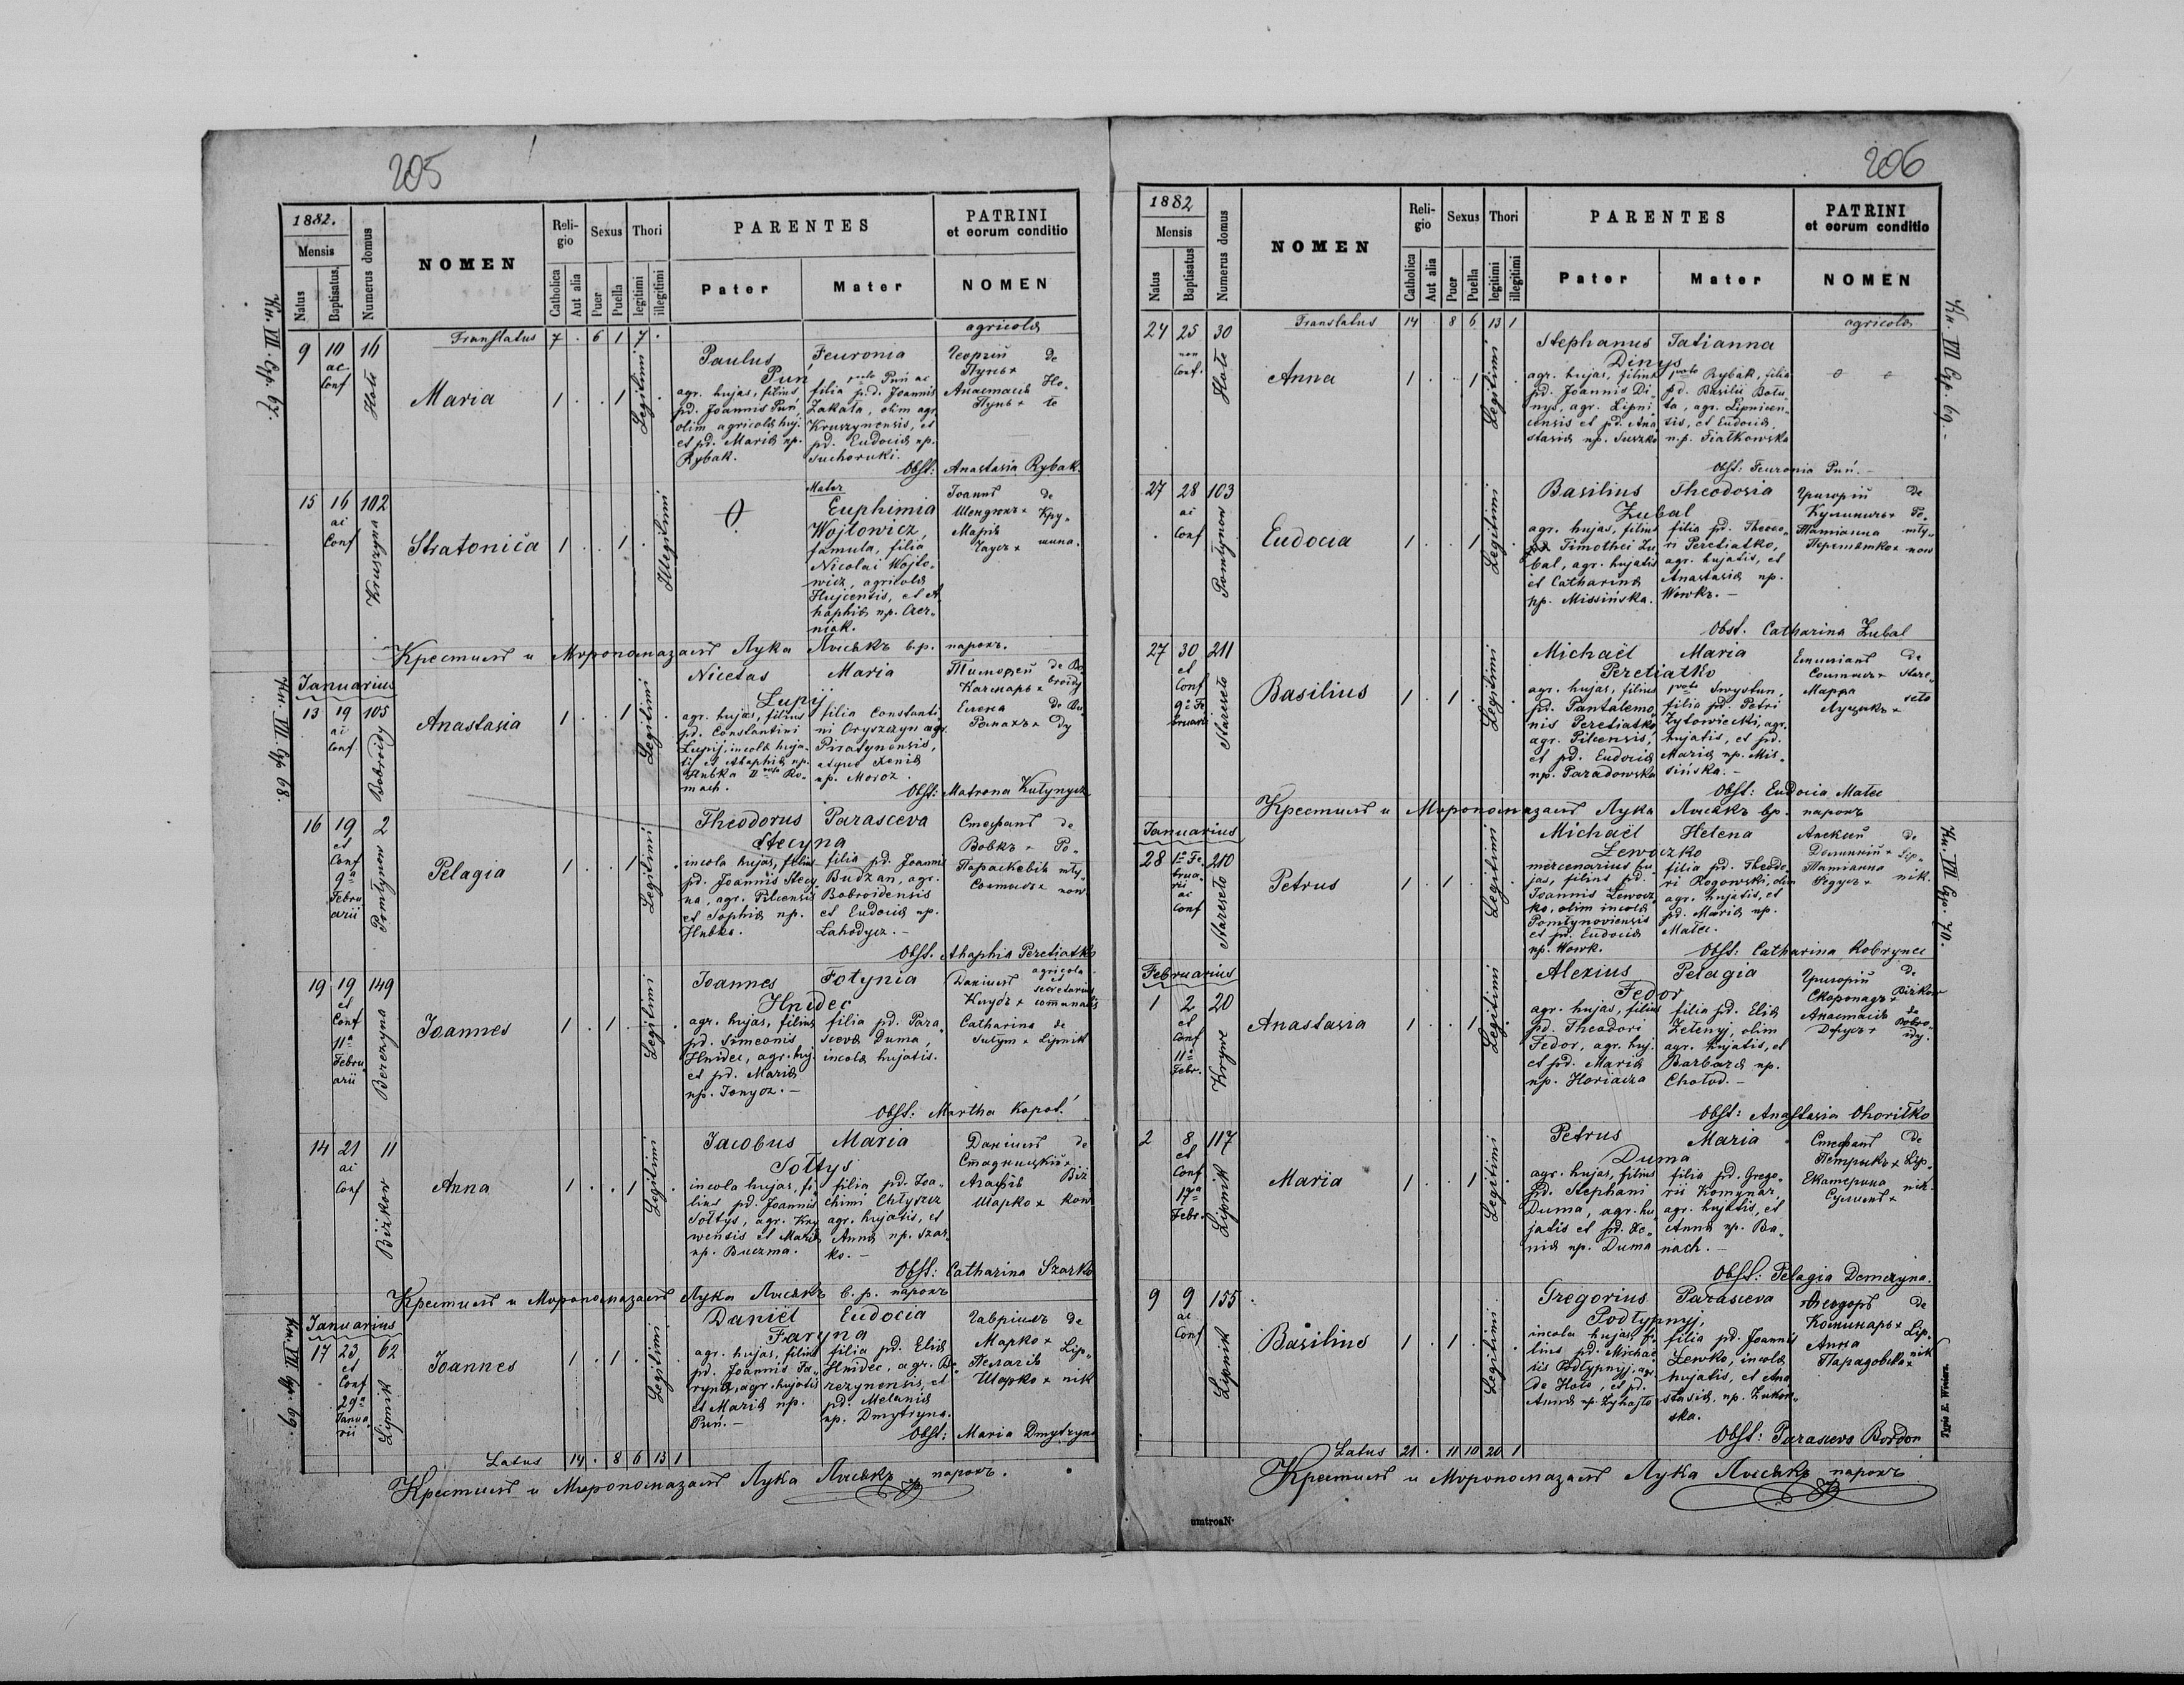 205
1882.
Mensis
Natus
Baptisatus
Numerus domus
NOMEN
Religio
Catholica
Aut alia
Sexus
Puer
Puella
Thori
legitimi
illegitimi
PARENTES
Pater
Mater
PATRINI
et eorum conditio
NOMEN
Translatus 7 . 6 1 7 .
agricolæ
9 10 16
ac
Conf
Hołe
Maria
1 . . 1
Legitimi
Paulus Feuronia
Puń
agr. hujas, filius
pd. Joannis Puń,
olim agricolæ huj.
et pd. Mariæ np.
Rybak.
filia p.d. Joannis
Zakała, olim agr.
Kruszynensis, et
pd. Eudociæ np.
Suchoruki.
Георгій de
Пунь +
Анастасія Ho-
Пунь + łe
Obst: Anastasia Rybak.
15 16 102
ac
Conf
Kruszyna
Stratonica
1 . . 1 .
Illegitimi
Mater
Euphimia
Wojtowicz,
famula, filia
Nicolai Wojto-
wicz, agricolæ
Hujcensis, et A-
haphiæ np. Czer-
niak.
Іоаннъ de
Шендикъ + Кру-
Марія
Гаусъ + шина.
Крестилъ и Мѵропомазалъ Лука Лисякъ в.р. парохъ.
Januarius
13 19 105
ac
Conf.
Bobroidy
Anastasia
1 . . 1 .
Legitimi
Nicetas Maria
Lupij
agr. hujas, filius
pd. Constantini
Lupij, incolæ huja-
tis et Ahaphiæ np.
Hubka II voto Ro-
mach.
filia Constanti-
ni Oryszczyn agr.
Piratynensis,
atque Xeniæ
np. Moroz.
Тимоѳей de Bo-
Качмаръ + broidy
Елена de Bu-
Ромахъ + dy
Obst: Matrona Kutynycz
16 19 2
et
Conf
9a
Febru
arii
Pomłynow
Pelagia
1 . . 1
Legitimi
Theodorus Parasceva
Stecyna
incola hujas, filius
pd. Joannis Stecy-
na, agr. Pilcensis
et Sophiæ np.
Hubka.
filia pd. Joannis
Budzan, agr.
Bobroidensis
et Eudociæ np.
Łahodycz. -
Стефанъ de
Вовкъ + Po-
Параскевія mły-
now
Obst. Ahaphia Peretiatko
19 19 149
et
Conf
11a
Febru
arii
Berezyna
Joannes
1 . 1 .
Legitimi
Joannes Fotynia
Hnidec
agr. hujas, filius
pd. Simeonis
Hnidec, agr. huj.
et pd. Mariæ
np. Jonycz. -
filia pd. Para-
scevæ Duma,
incolæ hujatis.
Даніилъ agricola
et
secretarius
communalis
Catharina de
Sułym + Lipnik
Obst: Martha Kopoł.
14 21 11
ac
Conf
Biżkow
Anna
1 . . 1 .
Legitimi
Jacobus Maria
Sołtys
incola hujas, fi-
lius pd. Joannis
Sołtys, agr. Kry-
wensis et Mariæ
np. Buczma.
filia pd. Joa-
chimi Chłypcz
agr. hujatis, et
Annæ np. Szar-
ko. -
Даніилъ de
Стадницкій +
Агафія Biż
Шарко + kow
Obst: Catharina Szarko
Крестилъ и Мѵропомазалъ Лука Лисякъ в.р. парохъ
Januarius
17 23 62
et
Conf
29a
Janua
rii
Lipnik
Joannes
1 . 1 .
Legitimi
Daniël Eudocia
Faryna
agr. hujas, filius
pd. Joannis Fa-
ryna, agr. hujatis
et Mariæ np.
Puń. -
filia pd. Eliæ
Hnidec, agr. Be-
rezynensis, et
pd. Melaniæ
np. Dmytryna.
Гавріилъ de
Марко + Lip-
Пелагія
Шарко + nik
Obst: Maria Dmytryna
Latus 14 . 8 6 13 1
Крестилъ и Мѵропомазалъ Лука Лисякъ парохъ.
Кн. VII. Стр. 67.
Кн. VII. Стр 68.
Кн. VII. Стр. 69.
206
1882
Mensis
Natus
Baptisatus
Numerus domus
NOMEN
Religio
Catholica
Aut alia
Sexus
Puer
Puella
Thori
legitimi
illegitimi
PARENTES
Pater
Mater
PATRINI
et eorum conditio
NOMEN
Translatus 14 . 8 6 13 1
agricolæ
24 25 30
non
Conf.
Hołe
Anna
1 . . 1
Legitimi
Stephanus Tatianna
Dinys
agr. hujas, filius
pd. Joannis Di-
nys, agr. Lipni-
censis et pd. Ana-
stasiæ np. Suszko
voto Rybak, filia
pd. Basilii Botu-
ta, agr. Lipnicen-
sis, et Eudociæ
n.p. Fiałkowska
Obst: Feuronia Puń.
27 28 103
ac
Conf
Pomłynow
Eudocia
1 . . 1 .
Legitimi
Basilius Theodosia
Zubal
agr. hujas, filius
pd. Timothei Zu-
bal, agr. hujatis
et Catharinæ
np. Missińska.
filia pd. Theodo-
ri Peretiatko,
agr. hujatis, et
Anastasiæ np.
Wowkъ. -
Григорій de
Po-
Татіанна mły-
Перетятко + now
Obst. Catharina Zubal
27 30 211
et
Conf
9a Fe
bruarii
Stareseło
Basilius
1 . 1 .
Legitimi
Michaël Maria
Peretiatko
agr. hujas, filius
pd. Pantalemo-
nis Peretiatko,
agr. Pilcensis,
et pd. Eudociæ
np. Paradowska
filia pd. Petri
Zytowiecki, agr.
hujatis, et pd.
Mariæ np. Mis-
sińska. -
Емиліанъ de
Stare-
Марѳа seło
Луцикъ +
Obst: Eudocia Małec
Крестилъ и Мѵропомазалъ Лука Лисякъ вр. парохъ
Januarius
28 1a Fe 210
brua
rii
ac
Conf
Stareseło
Petrus
1 . 1 .
Legitimi
Michaël Helena
Lewoczko
mercenarius hu-
jas, filius pd.
Joannis Lewocz-
ko, olim incolæ
Pomłynoviensis
et pd. Eudociæ
np. Wowk.
filia pd. Theodo-
ri Rogowski, olim
agr. hujatis, et
pd. Mariæ np.
Małec.
Алексій de
Lip-
Татіанна nik.
Obst: Catharina Kobrynec
Februarius
1 2 20
et
Conf
11a
Febr.
Krywe
Anastasia
1 . . 1 .
Legitimi
Alexius Pelagia
Fedor
agr. hujas, filius
pd. Theodori
Fedor, agr. huj.
et pd. Mariæ
np. Horiacza
filia pd. Eliæ
Zełenyj, olim
agr. hujatis, et
Barbaræ np.
Chołod. -
Григорій de
Скоропадъ + Biżkow
Анастасія de
Bobro-
idy.
Obst: Anastasia Ohoriłko
2 8 117
et
Conf
17a
Febr.
Lipnik
Maria
1 . . 1 .
Legitimi
Petrus Maria
Duma
agr. hujas, filius
pd. Stephani
Duma, agr. hu-
jatis et pd. Xe-
niæ np. Duma
filia pd. Grego-
rii Komynar,
agr. hujatis, et
Annæ np. Ba-
nach. -
Стефанъ de
Петрикъ + Lip-
Екатерина nik
Сулимъ +
Obst: Pelagia Demczyna.
9 9 155
ac
Conf
Lipnik
Basilius
1 . 1 .
Legitimi
Gregorius Parasceva
Podłypnyj,
incola hujas, fi-
lius pd. Michaë-
lis Podłypnyj, agr.
de Hołe, et pd.
Annæ np. Zyhajło
filia pd. Joannis
Lewko, incolæ
hujatis, et Ana-
stasiæ, np. Zukow-
ska.
Ѳеодоръ de
Коминаръ + Lip-
Анна nik
Парадовска +
Obst: Parasceva Bordon
Latus 21 . 11 10 20 1
Крестилъ и Мѵропомазалъ Лука Лисякъ парохъ
Кн. VII Стр. 69. -
Кн. VII Стр. 70.
Typis E. Winiarz.
Naortmu